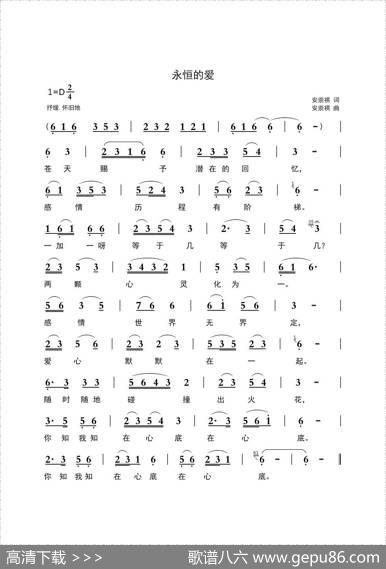 永恒的爱
1=D 2/4
抒缓 怀旧地
安崇祺 词
安崇祺 曲
(6 1 6 | 3 5 3 | 2 3 2 | 1 2 1 | 6 1 6 6 | 6 -) |
6 3 | 2 3 1 6 6 | 2 3 2 3 3 | 5 4 | 3 - |
苍 天 赐 予 潜 在 的 回 忆,
6 1 3 5 3 | 5 2 4 | 5 6 2 3 | 6 - |
感 情 历 程 有 阶 梯。
1 6 1 6 1 | 2 3 5 4 3 | 2· 3 | 5 4 3 |
一 加 一 呀 等 于 几 等 于 几?
2 3 5 3 | 3 4 3 2 | 5 1 2 3 | 6 1 6· |
两 颗 心 灵 化 为 一。
5 6 3 5 | 7 6 6 | 6 1 5 3 | 2 - |
感 情 世 界 无 界 定,
2 3 5 6 | 2 3 2 3 | 5 3 5 6 | 6 - |
爱 心 默 默 在 一 起。
6· 3 3 3 | 5 6 4 3 | 2 3 5 4 | 3 - |
随 时 随 地 碰 撞 出 火 花,
3· 5 5 5 | 2 3 5 4 3 | 2 3 5 6 1 | 6 - |
你 知 我 知 在 心 底 在 心 底。
2· 3 5 6 | 2 3 5 3 5 | 2 3 1 2 3 | 6 - | 6 - ‖
你 知 我 知 在 心 底 在 心 底。
高清下载 >>> 歌谱八六 www.gepu86.com